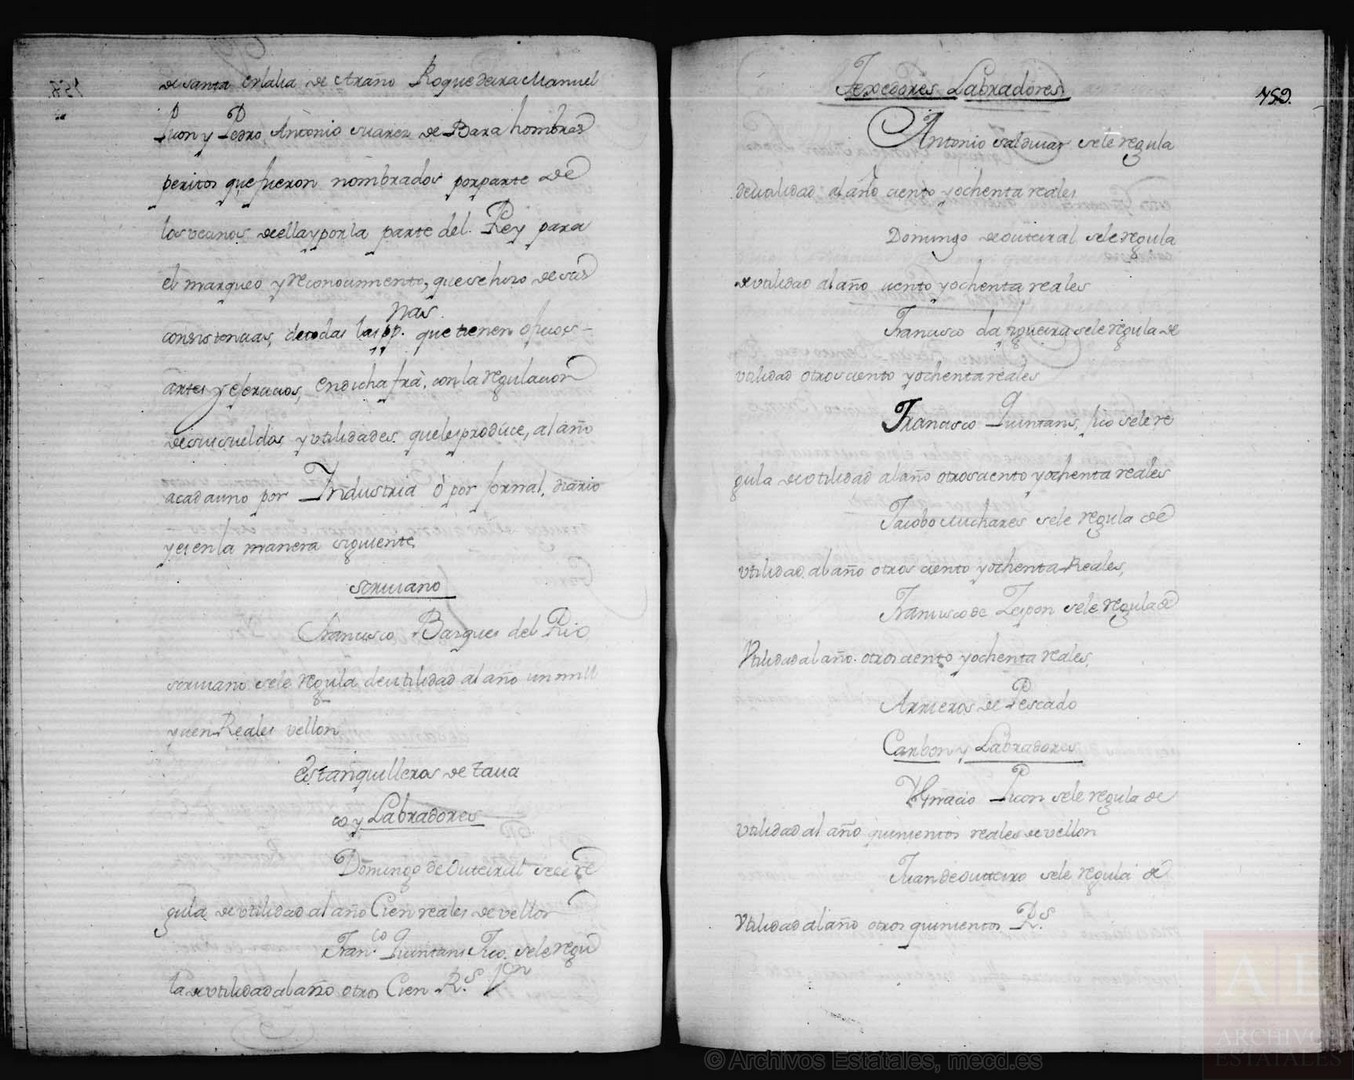 de santa eulalia de Arano Roque deira Manuel
Picon y Pedro Antonio suarez de Bara hombres
peritos que fueron nombrados por parte de
los vecinos de ella y por la parte del Rey para
el marqueo y reconocimiento, que se hizo de sus
nas.
consistencias, de todas las pp. que tienen oficios
artes y ejercicios, en dicha fra, con la regulacion
de sus sueldos y utilidades que les produce, al año
a cada uno por Industria ò por jornal, diario
y es en la manera siguiente
scriuano
Francisco Barques del Rio
scriuano sele regula de utilidad al año un mill
y cien Reales vellon
estanquilleros de taua
co y Labradores
Domingo de Outeiral se le re
gula de utilidad al año Cien reales de vellon
Fran.co Quintans Fco. sele regu
la de utilidad al año otros Cien R.s
Texedores Labradores
159.
Antonio saldiuar se le regula
de utilidad al año ciento y ochenta reales
Domingo de outeiral se le regula
de utilidad al año ciento y ochenta reales
Francisco da figueira se le regula de
utilidad otros ciento y ochenta reales
Francisco Quintans, fco se le re
gula de utilidad al año otros ciento y ochenta reales
Jacobo suchares se le regula de
utilidad al año otros ciento y ochenta Reales,
Francisco de Tejpon se le regula de
Vtilidad al año otros ciento y ochenta reales,
Arrieros de Pescado
Carbon y Labradores
Ygnacio Picon se le regula de
utilidad al año quinientos reales de vellon
Juan de outeiro se le regula de
Vtilidad al año otros quinientos R.s
© Archivos Estatales, mecd.es
AE
ARCHIVOS
ESTATALES